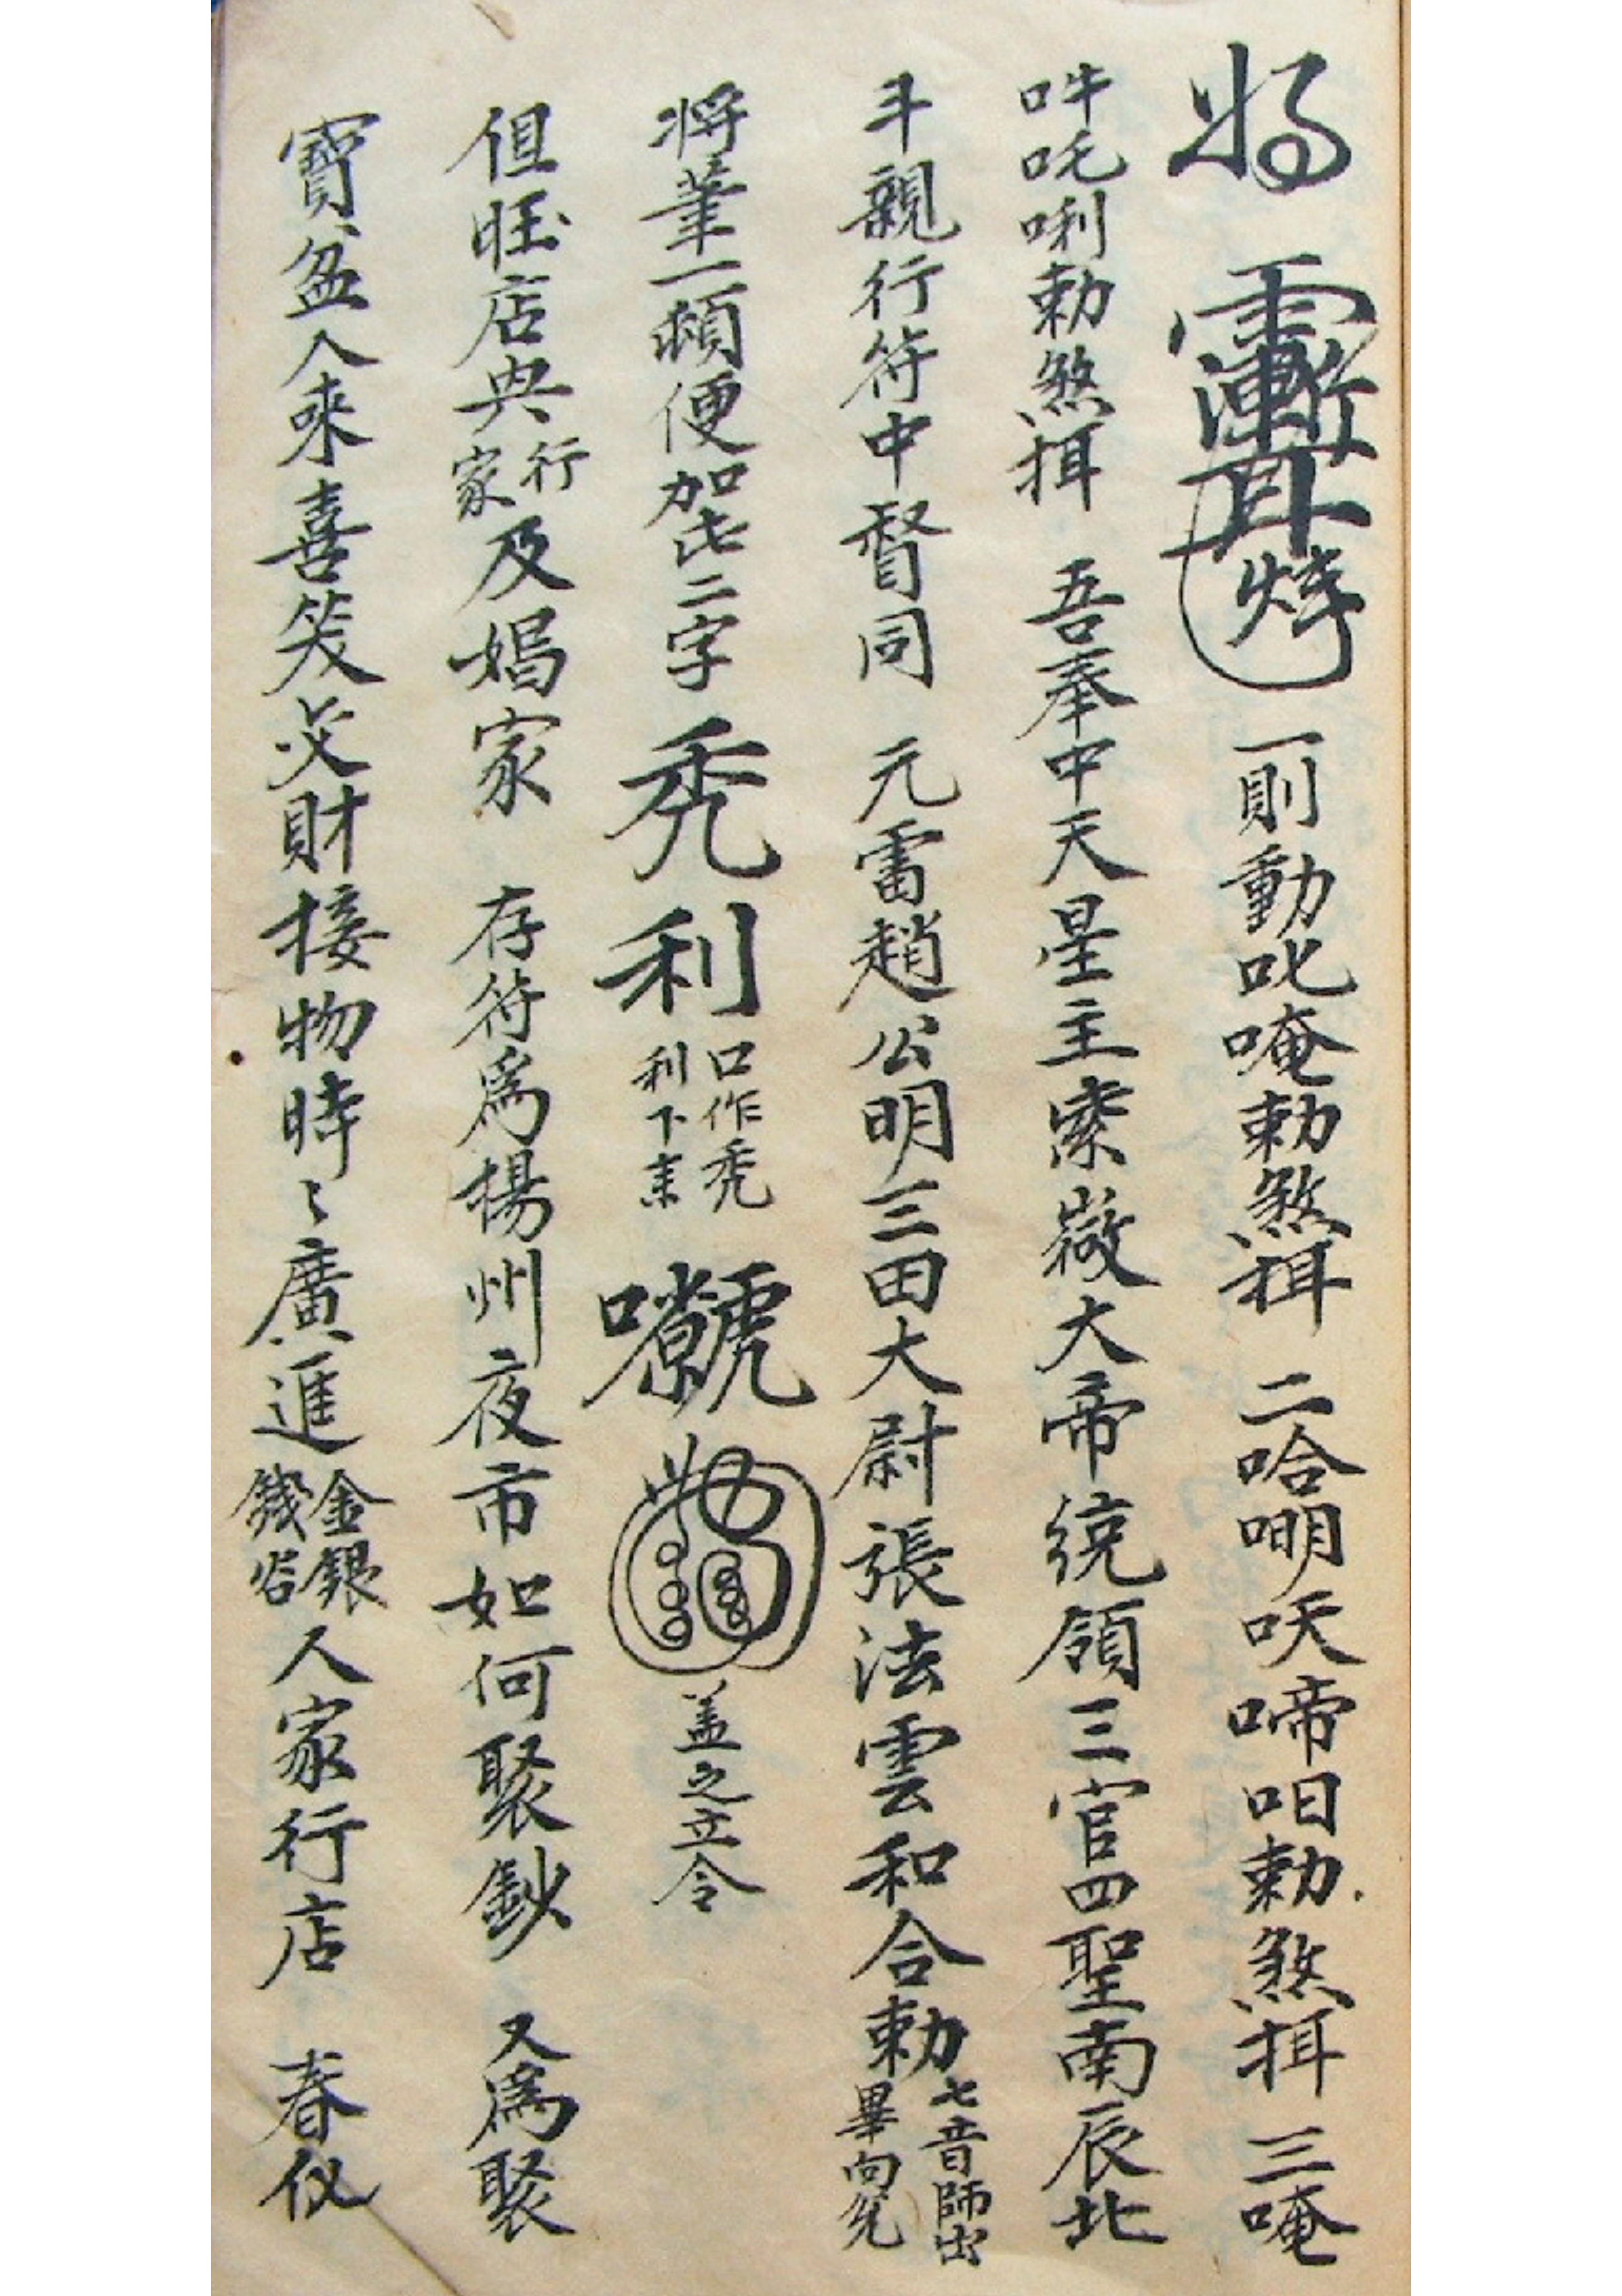 一則動叱唵勅煞挕 二哈𠵼呋啼呾勅煞挕 三唵
吽吒唎勅煞挕 吾奉中天星主紫微大帝統領三官四聖南辰北
斗親行符中督同 元雷趙公明三田大尉張法雲和合勅 七音師出 畢向
將筆一 便加此二字 禿利 口作禿 利下 蓋之立令
但旺店與行家及娼家 存符為楊州夜市如何聚鈔 又為聚
寶盆入來喜笑交財接物時〻廣進金銀錢谷人家行店 春仪